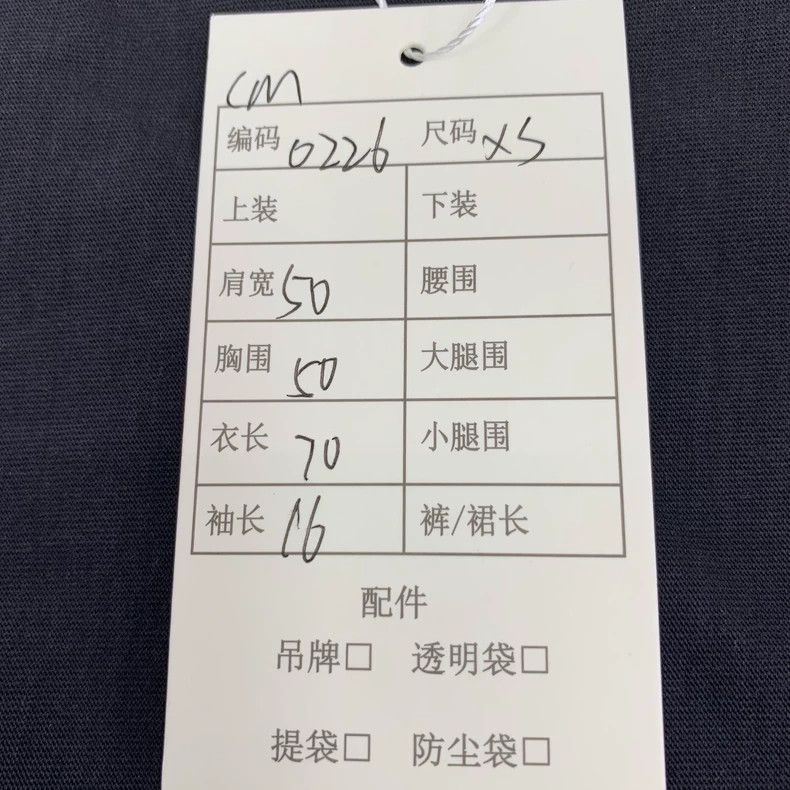 CM
编码 0226 尺码 XS
上装 下装
肩宽 50 腰围
胸围 50 大腿围
衣长 70 小腿围
袖长 16 裤/裙长
配件
吊牌□ 透明袋□
提袋□ 防尘袋□